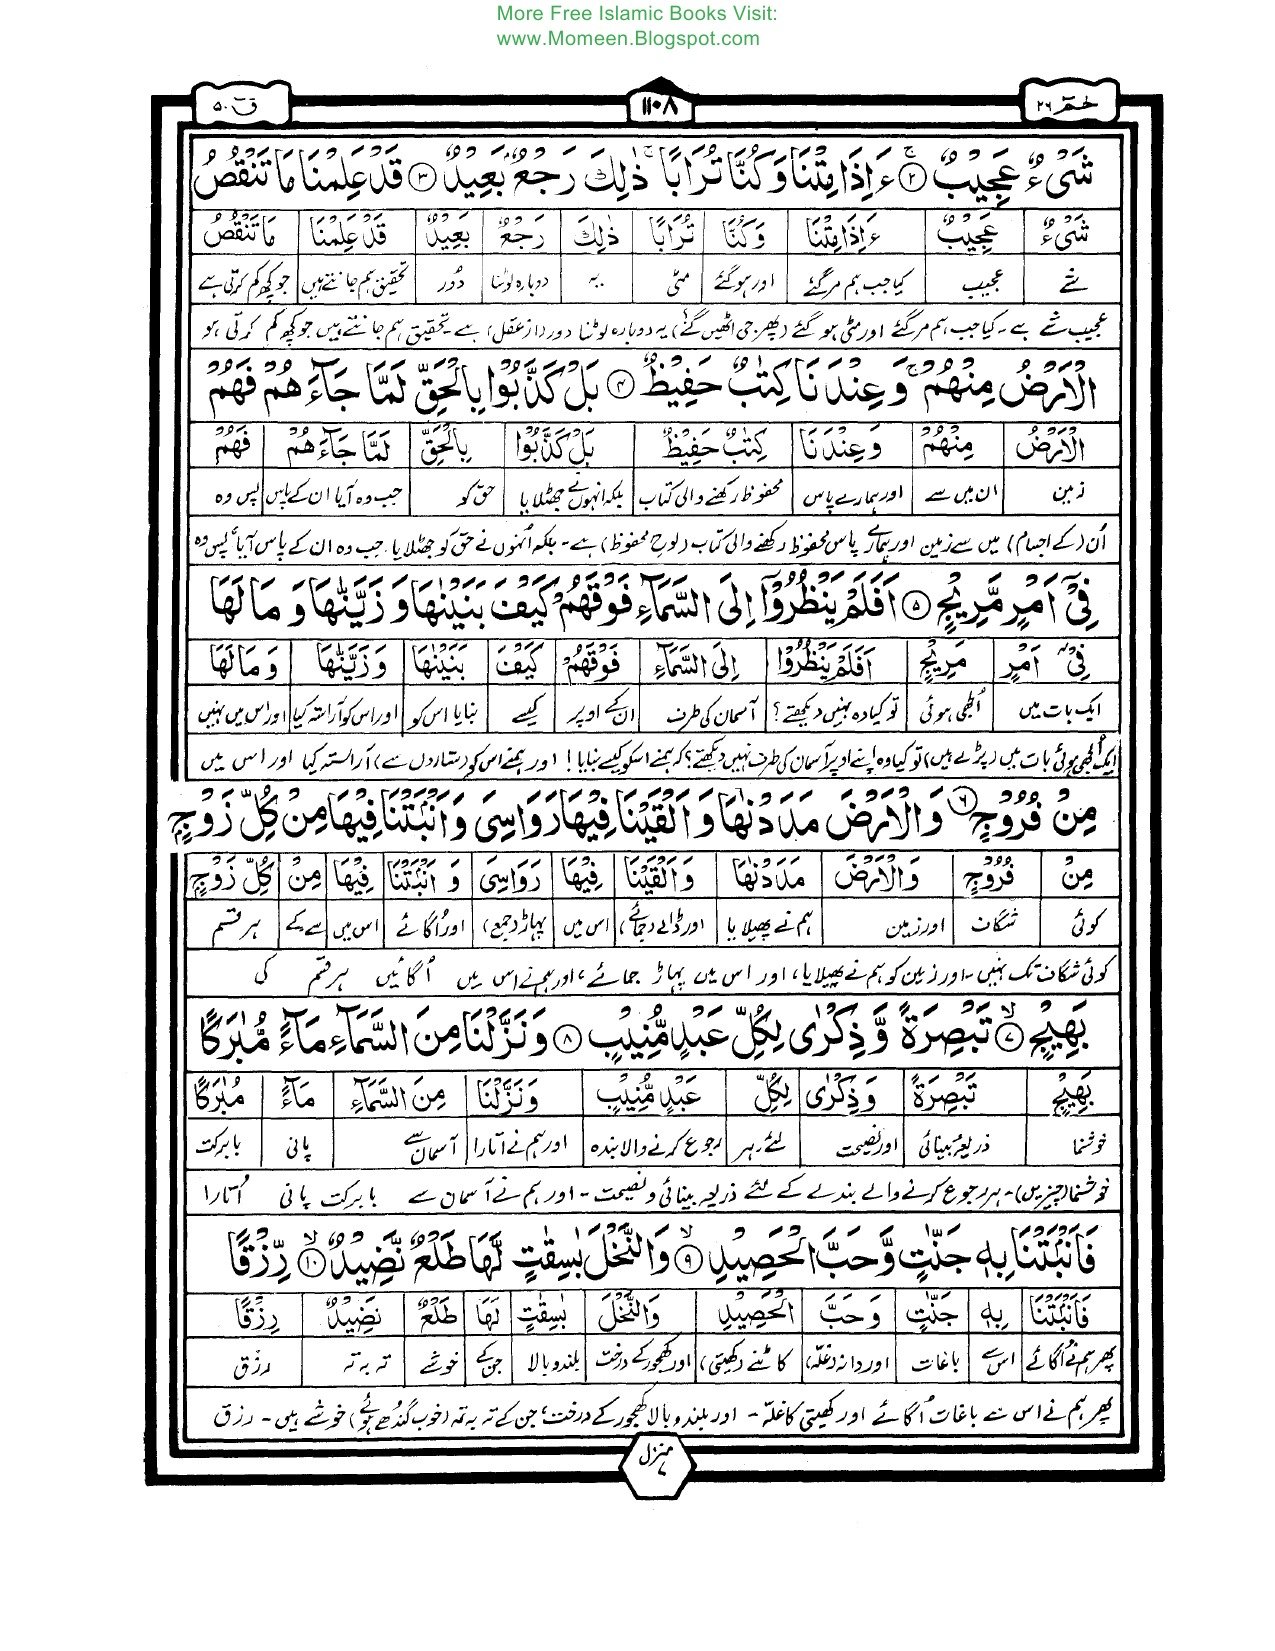 More Free Islamic Books Visit:
www.Momeen.Blogspot.com
حٰمٓ ۲۶
۱۱۰۸
قٓ ۵۰
شَیْءٌ عَجِیْبٌ ۚ۲ ءَاِذَا مِتْنَا وَكُنَّا تُرَابًا ۚ ذٰلِكَ رَجْعٌۢ بَعِیْدٌ ۳ قَدْ عَلِمْنَا مَا تَنْقُصُ
شَیْءٌ عَجِیْبٌ ءَاِذَا مِتْنَا وَكُنَّا تُرَابًا ذٰلِكَ رَجْعٌۢ بَعِیْدٌ قَدْ عَلِمْنَا مَا تَنْقُصُ
شے عجیب کیا جب ہم مرگئے اور ہوگئے مٹی یہ دوبارہ لوٹنا دُور تحقیق ہم جانتے ہیں جو کچھ کم کرتی ہے
عجیب شے ہے۔ کیا جب ہم مرگئے اور مٹی ہو گئے (پھر جی اٹھیں گے) یہ دوبارہ لوٹنا دور (از عقل) ہے۔ تحقیق ہم جانتے ہیں جو کچھ کم کرتی ہو
الْاَرْضُ مِنْهُمْ ۚ وَعِنْدَنَا كِتٰبٌ حَفِیْظٌ ۴ بَلْ كَذَّبُوْا بِالْحَقِّ لَمَّا جَآءَهُمْ فَهُمْ
الْاَرْضُ مِنْهُمْ وَعِنْدَنَا كِتٰبٌ حَفِیْظٌ بَلْ كَذَّبُوْا بِالْحَقِّ لَمَّا جَآءَهُمْ فَهُمْ
زمین ان میں سے اور ہمارے پاس محفوظ رکھنے والی کتاب بلکہ انہوں نے جھٹلایا حق کو جب وہ آیا ان کے پاس پس وہ
اُن (کے اجسام) میں سے زمین اور ہمارے پاس محفوظ رکھنے والی کتاب (لوحِ محفوظ) ہے۔ بلکہ اُنہوں نے حق کو جھٹلایا، جب وہ ان کے پاس آیا، پس وہ
فِیْۤ اَمْرٍ مَّرِیْجٍ ۵ اَفَلَمْ یَنْظُرُوْۤا اِلَی السَّمَآءِ فَوْقَهُمْ كَیْفَ بَنَیْنٰهَا وَزَیَّنّٰهَا وَمَا لَهَا
فِیْۤ اَمْرٍ مَّرِیْجٍ اَفَلَمْ یَنْظُرُوْۤا اِلَی السَّمَآءِ فَوْقَهُمْ كَیْفَ بَنَیْنٰهَا وَزَیَّنّٰهَا وَمَا لَهَا
ایک بات میں اُلجھی ہوئی تو کیا وہ نہیں دیکھتے؟ آسمان کی طرف ان کے اوپر کیسے بنایا اس کو اور اس کو آراستہ کیا اور اس میں نہیں
ایک اُلجھی ہوئی بات میں (پڑے ہیں) تو کیا وہ اپنے اوپر آسمان کی طرف نہیں دیکھتے؟ کہ ہمنے اسکو کیسے بنایا! اور ہمنے اس کو (ستاروں سے) آراستہ کیا اور اس میں
مِنْ فُرُوْجٍ ۶ وَالْاَرْضَ مَدَدْنٰهَا وَاَلْقَیْنَا فِیْهَا رَوَاسِیَ وَاَنْۢبَتْنَا فِیْهَا مِنْ كُلِّ زَوْجٍۭ
مِنْ فُرُوْجٍ وَالْاَرْضَ مَدَدْنٰهَا وَاَلْقَیْنَا فِیْهَا رَوَاسِیَ وَاَنْۢبَتْنَا فِیْهَا مِنْ كُلِّ زَوْجٍۭ
کوئی شگاف اور زمین ہم نے پھیلایا اور ڈالے (جمائے) اس میں پہاڑ (جمع) اور اُگائے اس میں سے کے ہر قسم
کوئی شگاف تک نہیں۔ اور زمین کو ہم نے پھیلایا، اور اس میں پہاڑ جمائے، اور ہم نے اس میں اُگائیں ہر قسم کی
بَهِیْجٍ ۙ۷ تَبْصِرَةً وَّذِكْرٰی لِكُلِّ عَبْدٍ مُّنِیْبٍ ۸ وَنَزَّلْنَا مِنَ السَّمَآءِ مَآءً مُّبٰرَكًا
بَهِیْجٍ تَبْصِرَةً وَّذِكْرٰی لِكُلِّ عَبْدٍ مُّنِیْبٍ وَنَزَّلْنَا مِنَ السَّمَآءِ مَآءً مُبٰرَكًا
خوشنما ذریعہ بینائی اور نصیحت لئے۔ ہر رجوع کرنے والا بندہ اور ہم نے اُتارا آسمان سے پانی بابرکت
خوشنما (چیزیں)۔ ہر رجوع کرنے والے بندے کے لئے ذریعہ بینائی و نصیحت۔ اور ہم نے آسمان سے بابرکت پانی اُتارا
فَاَنْۢبَتْنَا بِهٖ جَنّٰتٍ وَّحَبَّ الْحَصِیْدِ ۙ۹ وَالنَّخْلَ بٰسِقٰتٍ لَّهَا طَلْعٌ نَّضِیْدٌ ۙ۱۰ رِّزْقًا
فَاَنْۢبَتْنَا بِهٖ جَنّٰتٍ وَحَبَّ الْحَصِیْدِ وَالنَّخْلَ بٰسِقٰتٍ لَهَا طَلْعٌ نَضِیْدٌ رِزْقًا
پھر ہم نے اُگائے اس سے باغات اور دانہ (غلہ) کاٹنے (کھیتی) اور کھجور کے درخت بلند و بالا جن کے خوشے تہ بہ تہ رزق
پھر ہم نے اس سے باغات اُگائے اور کھیتی کا غلّہ۔ اور بلند و بالا کھجور کے درخت، جن کے تہ بہ تہ (خوب گندُھے ہوئے) خوشے ہیں۔ رزق
منزل ۷